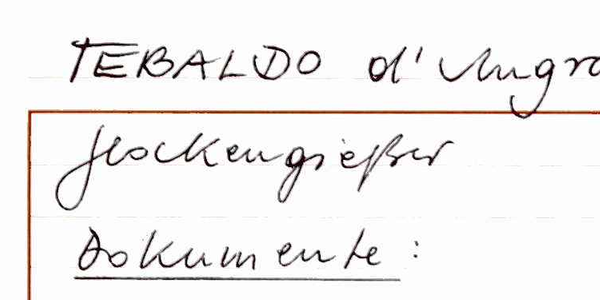 TEBALDO d'
Glockengießer
Dokumente: